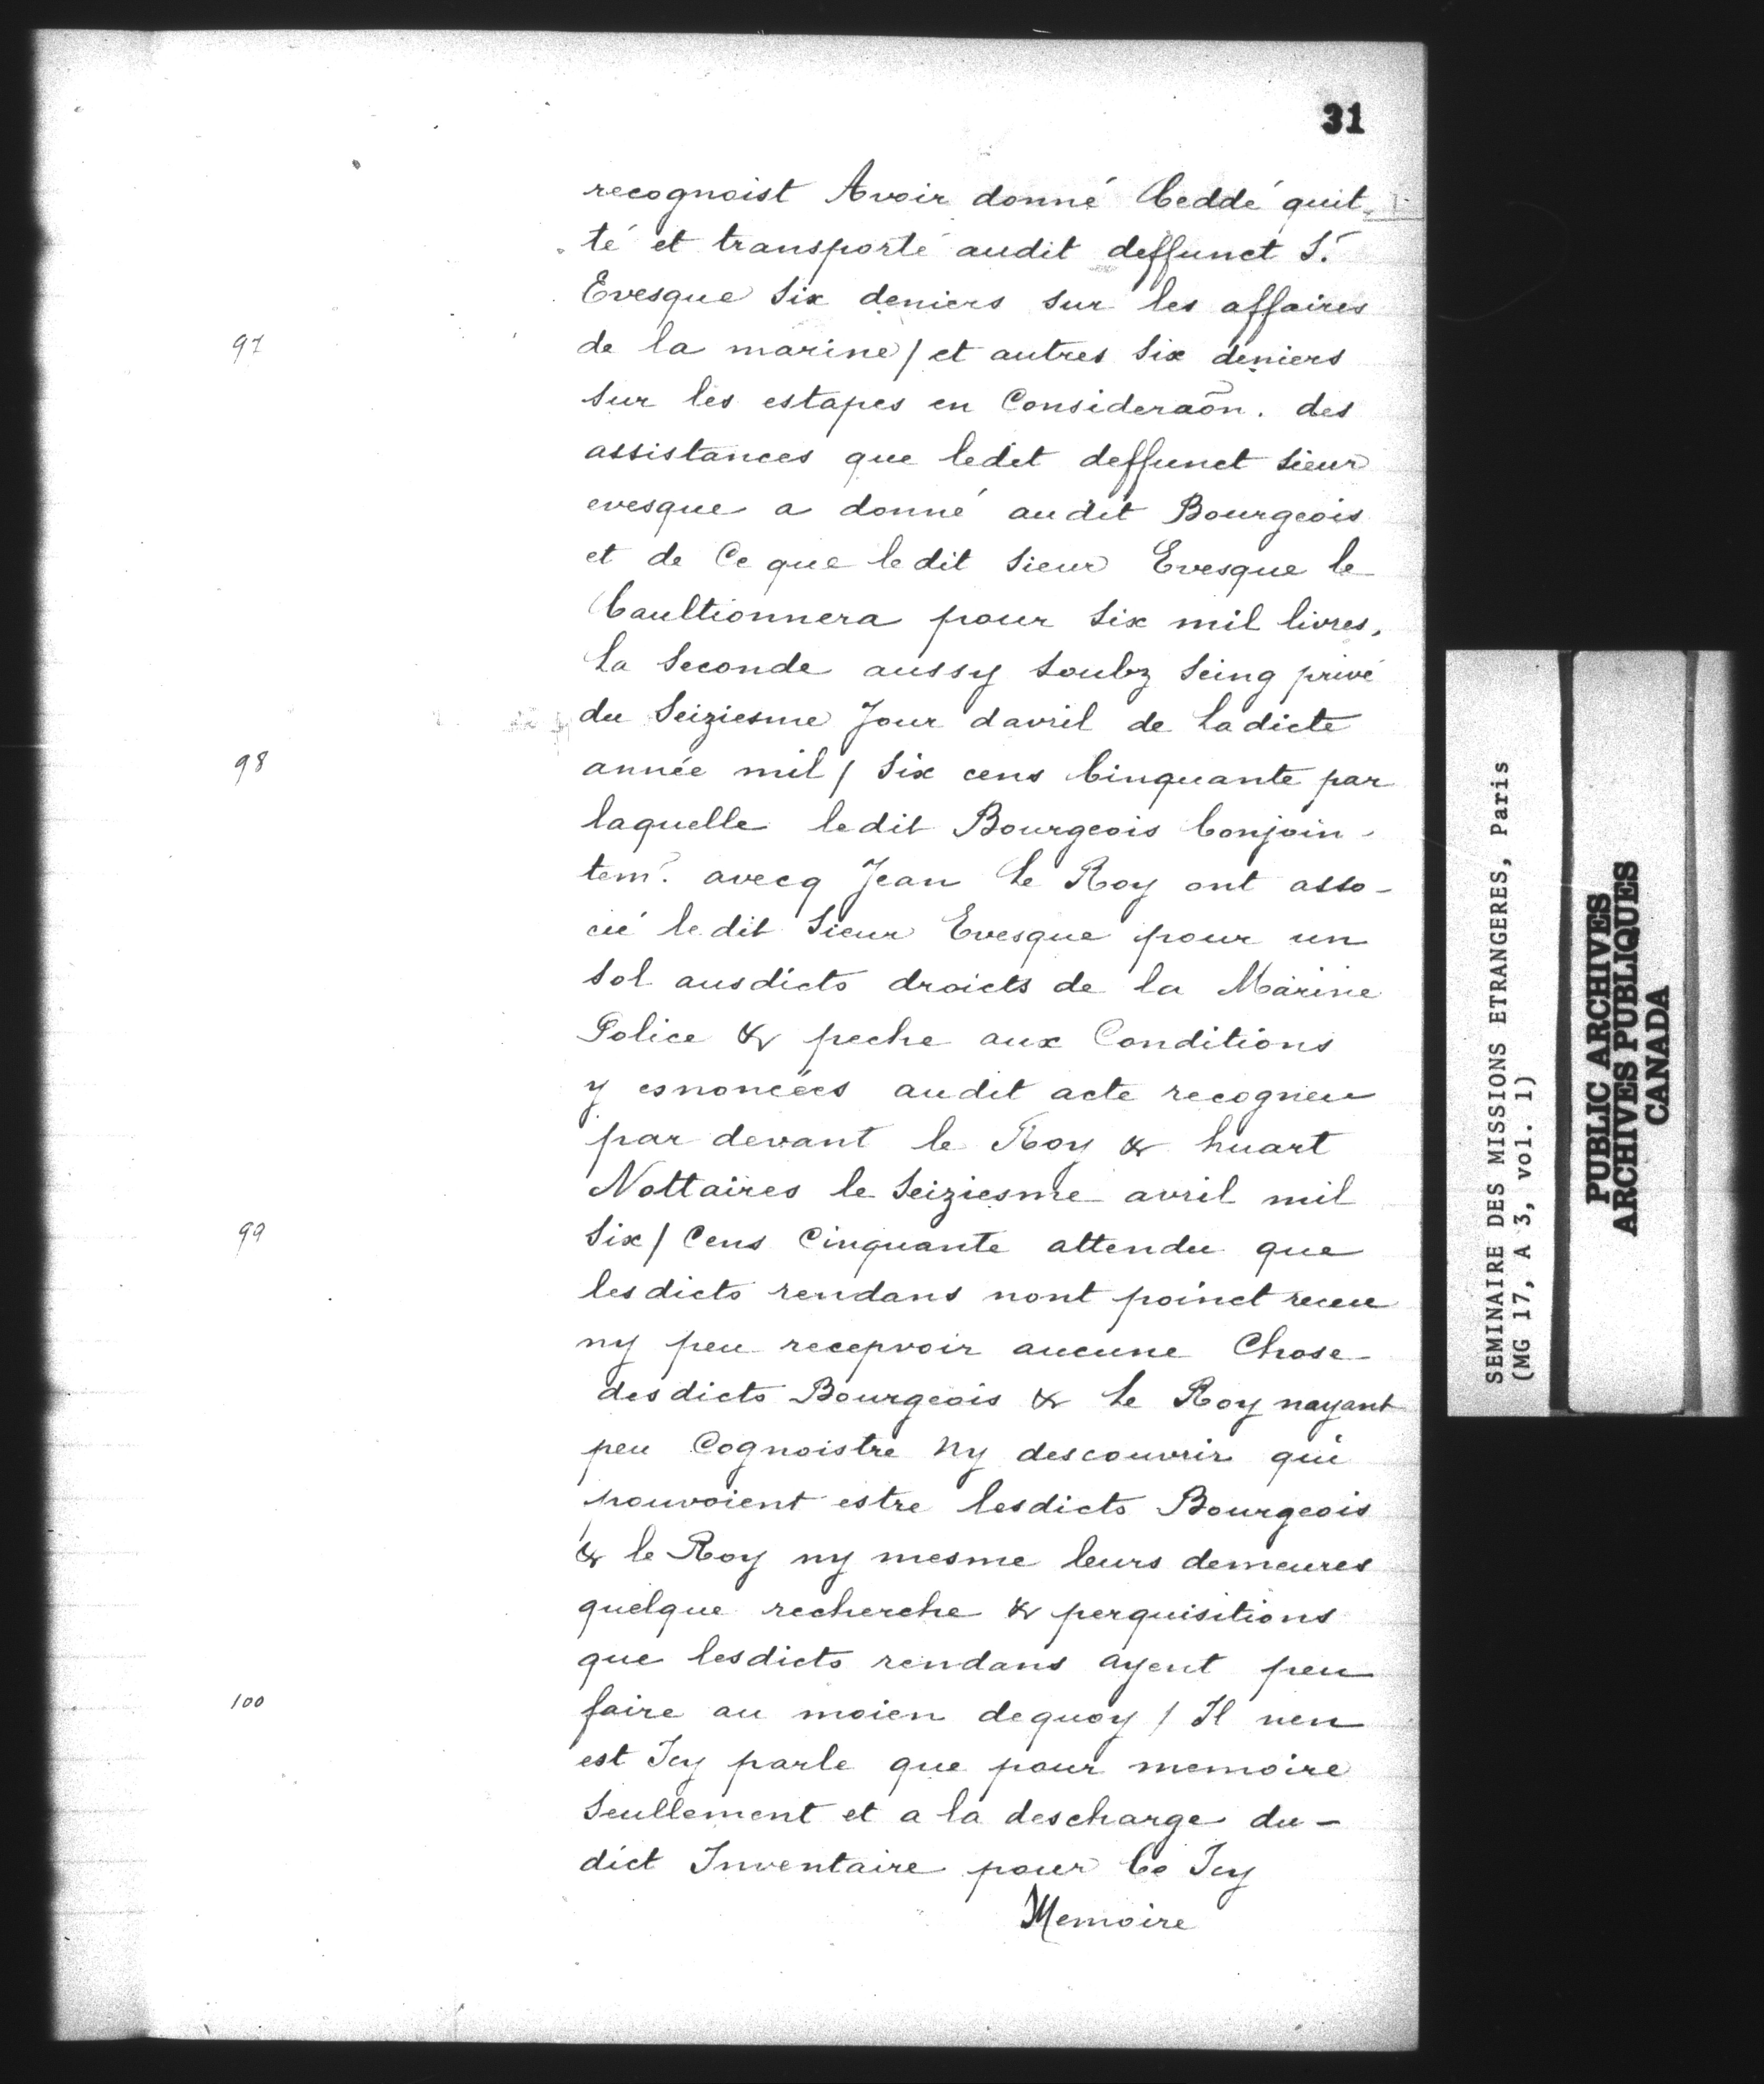 31
recognoist Avoir donné Ceddé quit-
té et transporté audit deffunct Sr.
Evesque Six deniers Sur les affaires
97
de la marine / et autres Six deniers
Sur les estapes en Consideraõn. des
assistances que ledit deffunct Sieur
evesque a donné audit Bourgeois
et de Ce que ledit Sieur Evesque le
Caultionnera pour Six mil livres,
La Seconde aussy Soubz Seing privé
du Seiziesme Jour davril de Ladicte
98
année mil / Six cens Cinquante par
laquelle ledit Bourgeois Conjoin-
temt. avecq Jean Le Roy ont asso-
cié ledit Sieur Evesque pour un
Sol ausdicts droicts de la Marine
Police & peche aux Conditions
y esnoncées audit acte recogneu
par devant le Roy & huart
Nottaires le Seiziesme avril mil
99
Six / Cens Cinquante attendu que
lesdicts rendans nont poinct receu
ny peu recepvoir aucune Chose
desdicts Bourgeois & Le Roy nayant
peu Cognoistre Ny descouvrir qui
pouvoient estre lesdicts Bourgeois
& le Roy ny mesme leurs demeures
quelque recherche & perquisitions
que lesdicts rendans ayent peu
100
faire au moien dequoy / Il nen
est Icy parle que pour memoire
Seullement et a la descharge du-
dict Inventaire pour Ce Icy
Memoire
SEMINAIRE DES MISSIONS ETRANGERES, Paris
(MG 17, A 3, vol. 1)
PUBLIC ARCHIVES
ARCHIVES PUBLIQUES
CANADA